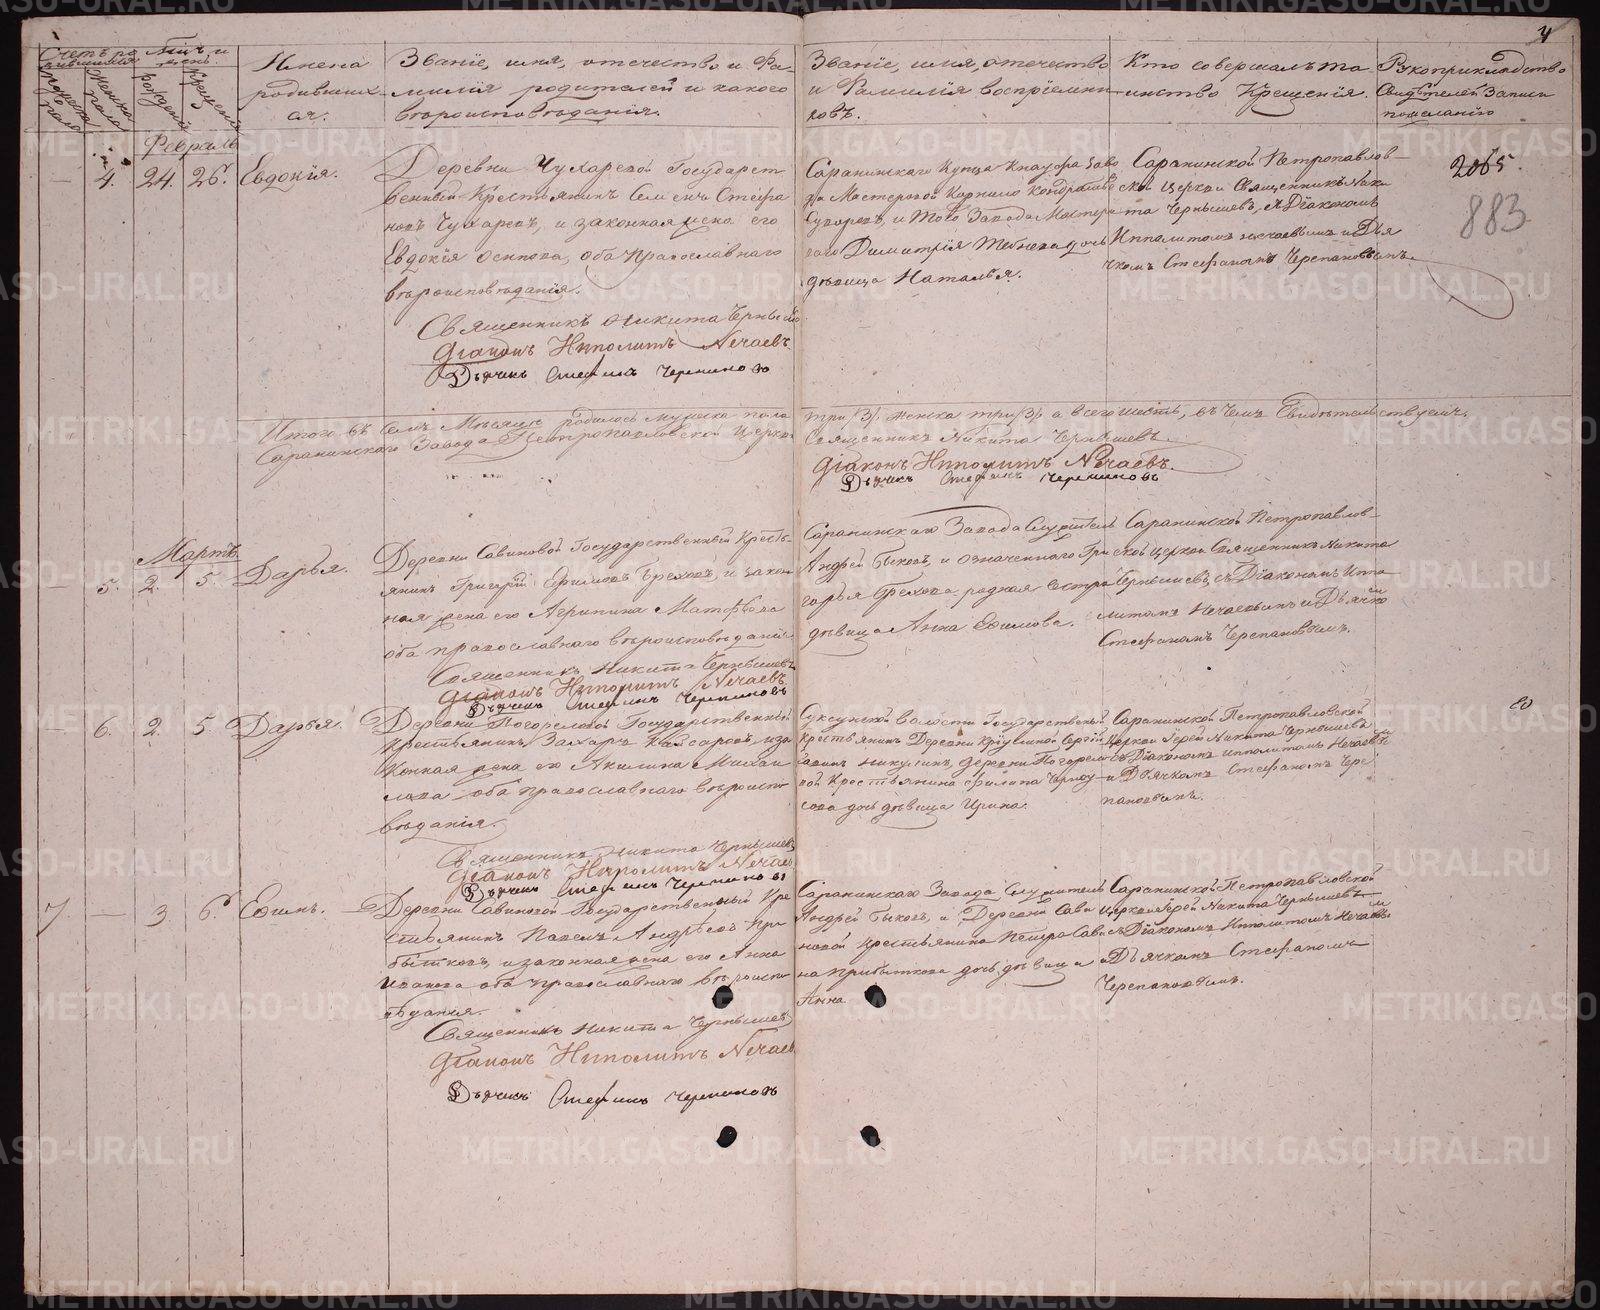 4
Счетъ родившихся
мужеска пола
женска пола
Мѣсяцъ и день
рожденія
крещенія
Имена
родивших-
ся.
Званіе, имя, отечество и Фа-
милія родителей и какого
вѣроисповѣданія.
Званіе, имя, отечество
и Фамилія воспріемни-
ковъ.
Кто совершалъ та-
инство Крещенія.
Рукоприкладство
Свидѣтелей Записи
по желанію
Февраль
— 4. 24. 26. Евдокія.
Деревни Чухаревой Государст-
венный Крестьянинъ Семенъ Стефа-
новъ Чухаревъ, и законная жена его
Евдокія Осипова, оба Православнаго
вѣроисповѣданія.
Священникъ Никита Чернышевъ
Діаконъ Ипполитъ Нечаевъ.
Дьячекъ Стефанъ Черепановъ
Саранинскаго Купца Кнауфа Заво
да Мастеровой Корнило Кондратьевъ
Суворовъ, и Того Завода Мастеро
ваго Димитрія дочь
дѣвица Наталья.
Саранинской Петропавлов-
ской Церкви Священникъ Ники
та Чернышевъ, съ Діакономъ
Ипполитомъ Нечаевымъ и Дья
чкомъ Стефаномъ Черепановымъ.
2065.
883
Итого въ семъ Мѣсяцѣ родилось мужска пола
три /3/. женска три /3/ а всего шесть, въ чемъ Свидѣтельствуемъ.
Саранинскаго Завода Петропавловской Церкви
Священникъ Никита Чернышевъ.
Діаконъ Ипполитъ Нечаевъ.
Дьячекъ Стефанъ Черепановъ
Мартъ
— 5. 2. 5. Дарья.
Деревни Савиновой Государственный Кресть-
янинъ Григорій Ефимовъ Греховъ, и закон
ная жена его Агрипина Матфѣева
оба православнаго вѣроисповѣданія.
Священникъ Никита Чернышевъ
Діаконъ Ипполитъ Нечаевъ.
Дьячекъ Стефанъ Черепановъ
Саранинскаго Завода Служитель
Андрей Быковъ, и означеннаго Гри
горья Грехова родная сестра
дѣвица Анна Ефимова.
Саранинской Петропавлов-
ской Церкви Священникъ Никита
Чернышевъ, съ Діакономъ Иппо
литомъ Нечаевымъ и Дьячко
мъ
Стефаномъ Черепановымъ.
— 6. 2. 5. Дарья.
Деревни Погореловой Государственный
крестьянинъ Захаръ Кайсаровъ, и за
конная жена его Акилина Михаи
лова оба православнаго вѣроиспо
вѣданія.
Священникъ Никита Чернышевъ
Діаконъ Ипполитъ Нечаевъ
Дьячекъ Стефанъ Черепановъ
Суксунской Волости Государственной
крестьянинъ Деревни Сергій
Никулинъ, деревни Погорело
вой Крестьянина Филипа Черноу
сова дочь дѣвица Ирина.
Саранинской Петропавловской
Церкви Іерей Никита Чернышевъ
съ Діакономъ Ипполитомъ Нечаевы
мъ
и Дьячкомъ Стефаномъ Чере
пановымъ.
7 — 3. 6. Ефимъ.
Деревни Савиновой Государственный Кре
стьянинъ Павелъ Андрѣевъ При
бытковъ, и законная жена его Анна
Иванова оба православнаго вѣроиспо
вѣданія.
Священникъ Никита Чернышевъ
Діаконъ Ипполитъ Нечаевъ
Дьячекъ Стефанъ Черепановъ
Саранинскаго Завода Служитель
Андрей Быковъ, и Деревни Сави
новой крестьянина Петра Сави
на Прибыткова дочь дѣвица
Анна
Саранинской Петропавловской
Церкви Іерей Никита Чернышевъ
съ Діакономъ Ипполитомъ Нечаевы
мъ
и Дьячкомъ Стефаномъ
Черепановымъ.
METRIKI.GASO-URAL.RU